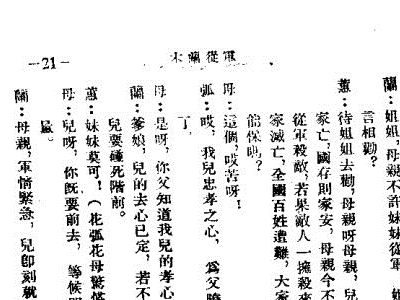 電從蘭木
—21—
蘭：姐姐，母親不許妹妹從軍
言相勸？
蕙：待姐姐去勸，母親呀母親，兒
家亡，國存則家安，母親今不
從軍殺敵，若果敵人一擁殺來
家滅亡，全國百姓遭難，大家
能保嗎？
母：這個，哎苦呀！
弧：哎，我兒忠孝之心，爲父
了，
母：是呀，你父知道我兒的孝心
蘭：爹娘，兒的去心已定，若不
兒要碰死階前。
蕙：妹妹莫可！（花弧花母驚
母：兒呀，你旣要前去，等候
蘭：母親，軍情緊急，兒卽刻就